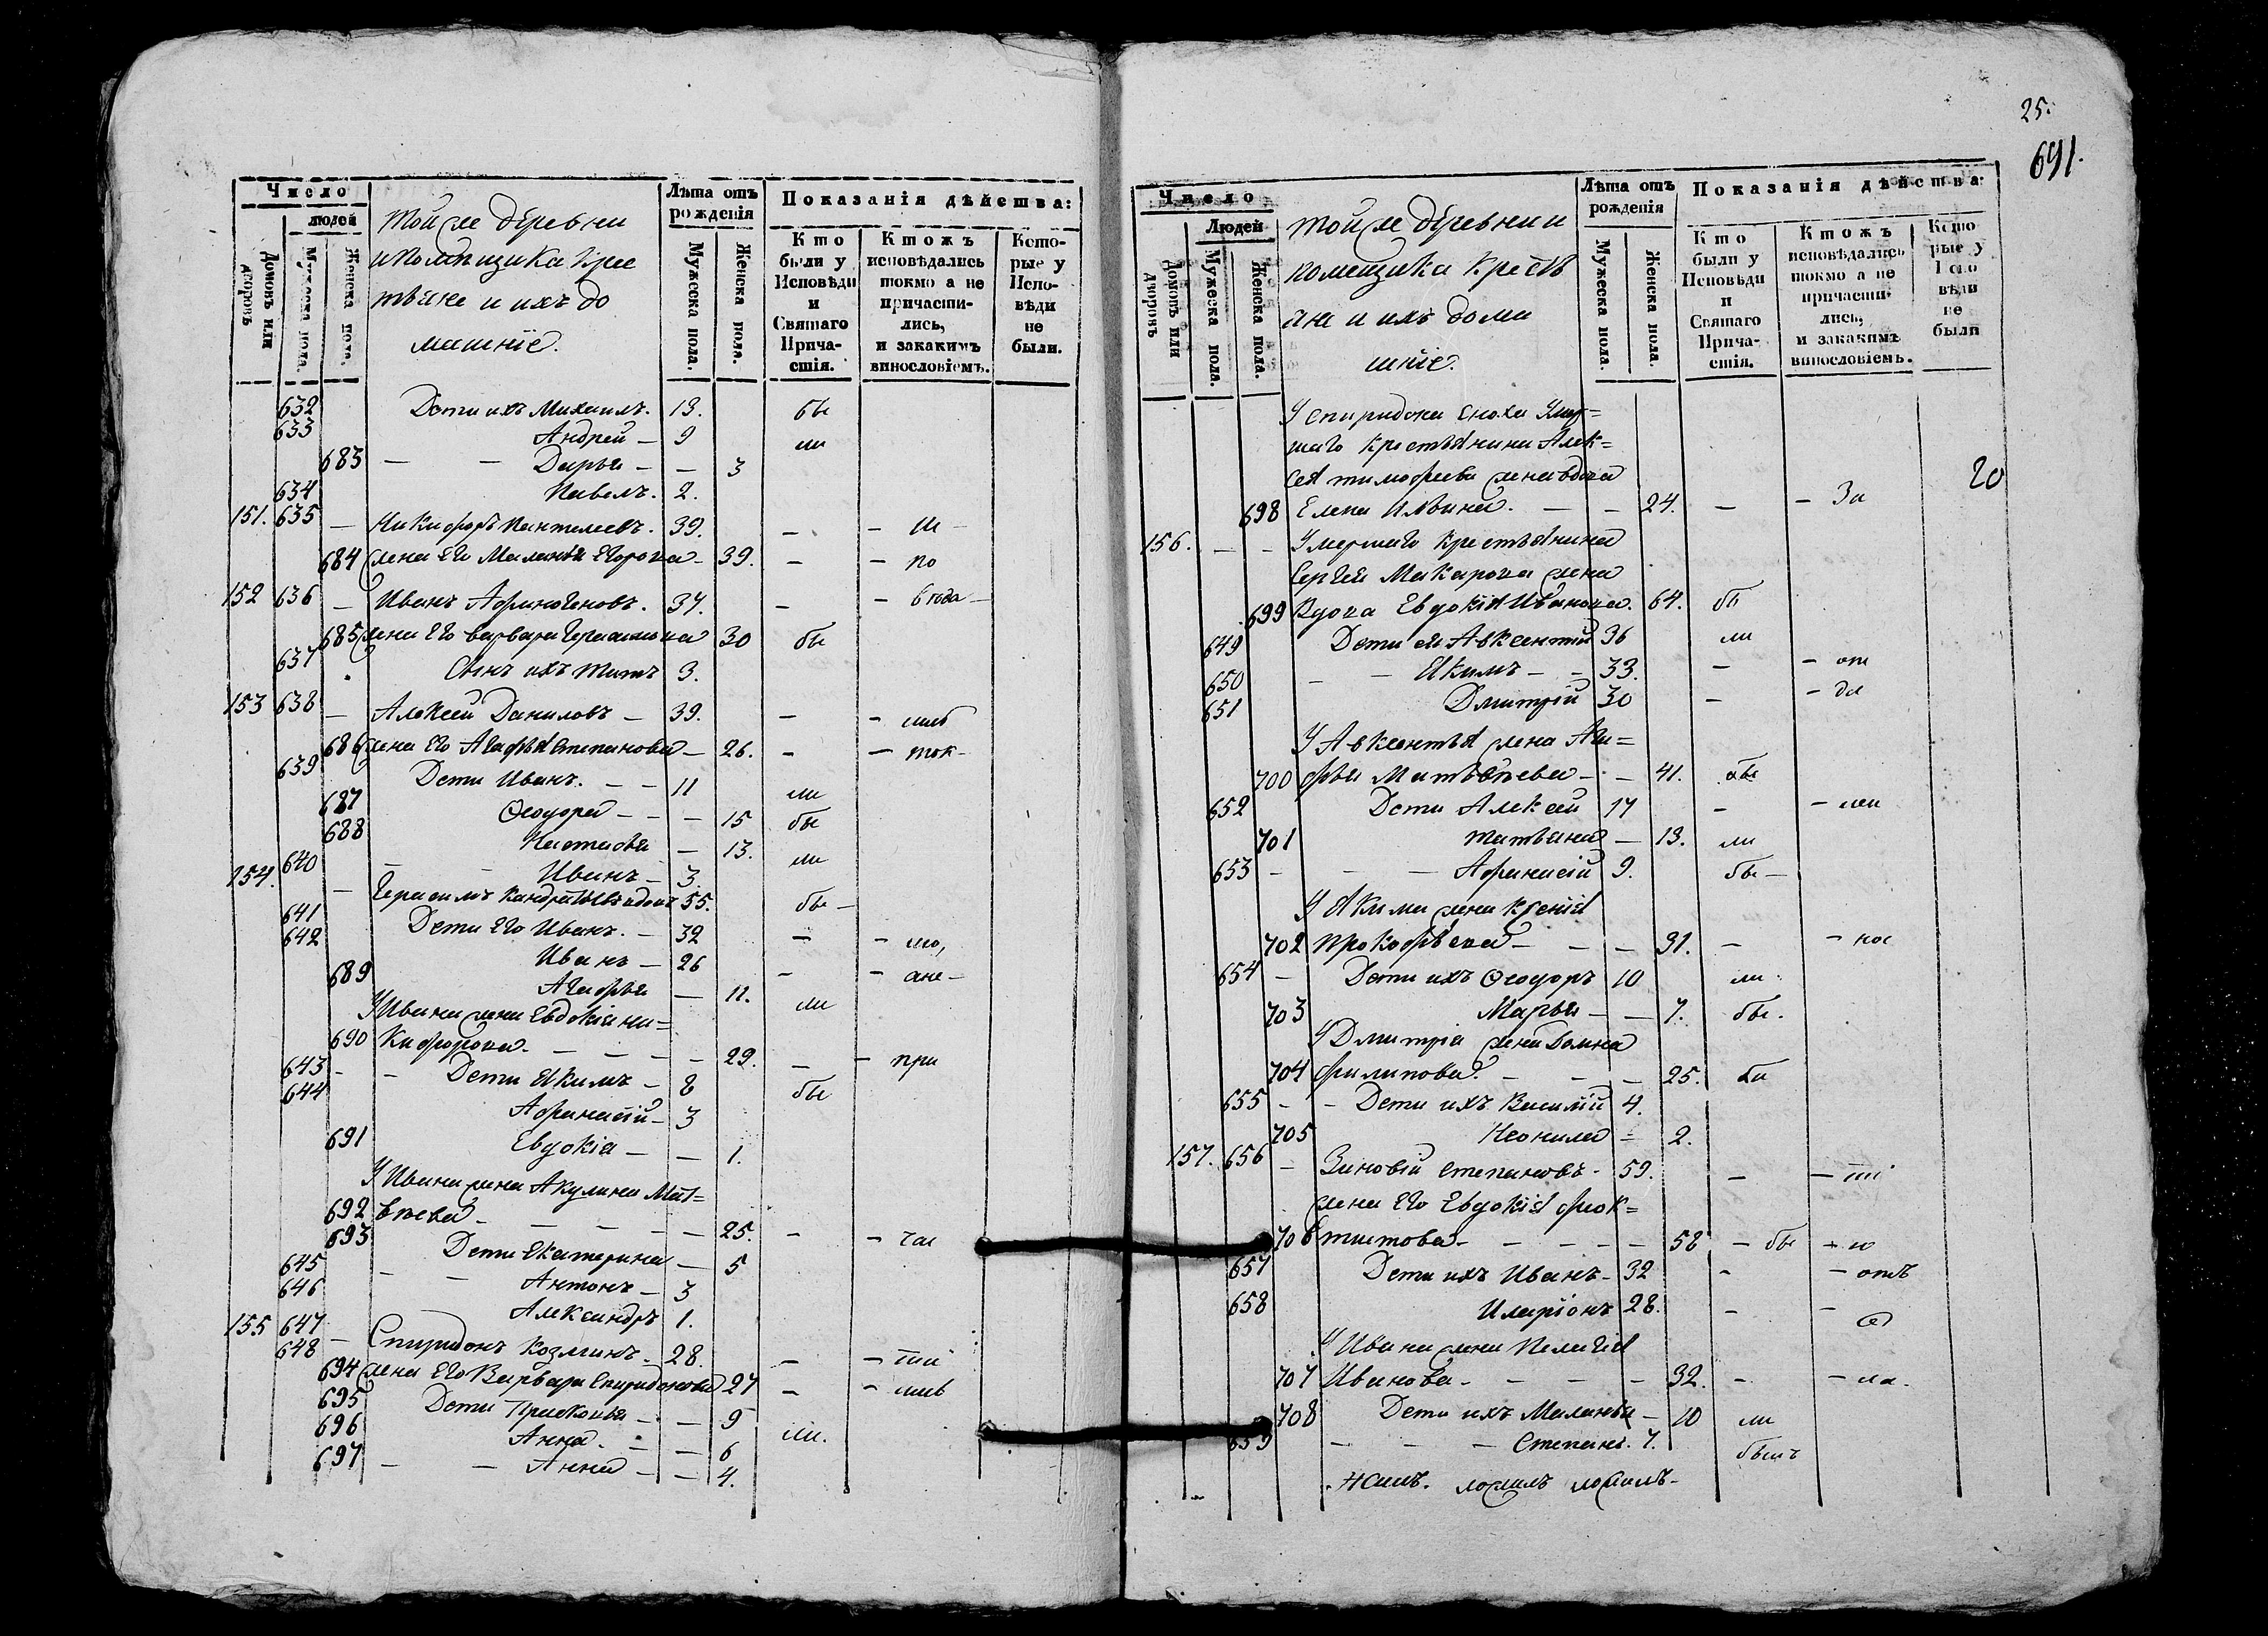 Число
людей
Домовъ или дворовъ
Мужеска пола.
Женска пола.
той же деревни
и помѣщика крес
тьяне и ихъ до
машніе.
Лѣта отъ рожденія
Мужеска пола.
Женска пола.
Показанія дѣйства:
Кто были у Исповѣди и Святаго Прича- стія.
Ктожъ исповѣдались токмо а не причасти- лись, и закакимъ винословіемъ.
Кото- рые у Испо- вѣди не были.
632 Дети ихъ Михаилъ. 13. бы
633 Андрей — 9 ли
683 — — Дарья — — 3
634 Павелъ. 2.
151. 635 — Никифоръ Пантелеевъ. 39. — —
684 жена Его Маланья Егорова — 39. — — по
152 636 — Иванъ Афиногеновъ. 37. — — года —
685 жена Его варвара Герасимова 30 бы
637 Сынъ ихъ Титъ 3.
153 638 — Алексей Даниловъ — 39. — —
686 жена Его Агафья Степанова — 26. — — ток —
639 Дети Иванъ. — — 11 ли
687 Ѳеодора — — — 15 бы
688 Настасья — 13. ли
640 — — Иванъ — 3
154. — Герасимъ Кандратьевъ вдовъ 55. бы —
641 Дети Его Иванъ. — 32 — —
642 Иванъ — 26 — — ане —
689 Агафья — 11. ли
У Ивана жена Евдокіа ни=
690 кифорова. — — — — 29. — — при
643 — — Дети Якимъ — 8 бы
644 Афанасій — 3
691 Евдокіа — — 1.
У Ивана жена Акулина Мат=
692 вѣева — — — — — 25. — — час
693 Дети Екатерина — 5
645 — — Антонъ — 3
646 Александръ 1.
155 647 — Спиридонъ Козминъ — 28. — — ти
648
694 жена Его Варвара Спиридонова 27 — —
695 Дети Прасковья — — 9
696 Анна. — — 6 ли.
697 — — Анна — — 4.
25.
691.
Число
Людей
Домовъ или дворовъ
Мужеска пола.
Женска пола.
той же деревни и
помещика кресть
яне и ихъ дома
шніе.
Лѣта отъ рожденія
Мужеска пола.
Женска пола.
Показанія дѣйства:
Кто были у Исповѣди и Святаго Прича- стія.
Ктожъ исповѣдались токмо а не причасти- лись, и закакимъ винословіемъ.
Кото рые у Испо вѣди не были
У Спиридона Сноха Умер=
шаго крестьянина Алек=
сея тимофеева жена вдова 20
698 Елена Ильина. — — 24. — — За
156. — — Умершаго крестьянина
Сергея Макарова жена
699 Вдова Евдокія Иванова. 64. бы
649 Дети ея Авксентій 36 ли
650 — — Якимъ — — 33. — — оп
651 Дмитрій 30 — —
У Авксентья жена Ага=
700 фья Матвѣева — — 41. обы
652 Дети Алексей 17 — —
701 татьяна — 13. ли
653 — — — Афанасій 9. бы —
У Якима жена Ксенія
702 прокофьева — — — 31. — — нос
654 — Дети ихъ Ѳеодоръ 10 ли
703 Марья — — 7. бы.
У Дмитріа жена Домна
704 филипова. — — — 25. бы
655 — — Дети ихъ Василій 4.
705 Неонила = 2.
157. 656 — Зиновій Степановъ. 59. — — ти
жена Его Евдокія фіок=
706 тистова — — — — — 58 — бы — ю
657 Дети ихъ Иванъ — 32 — — отъ
658 Иларіонъ 28. — —
У Ивана жена Пелагія
707 Иванова — — — — 32. — — ла.
708 Дети ихъ Маланья — 10 ли
659 — — — Степанъ. 7. былъ